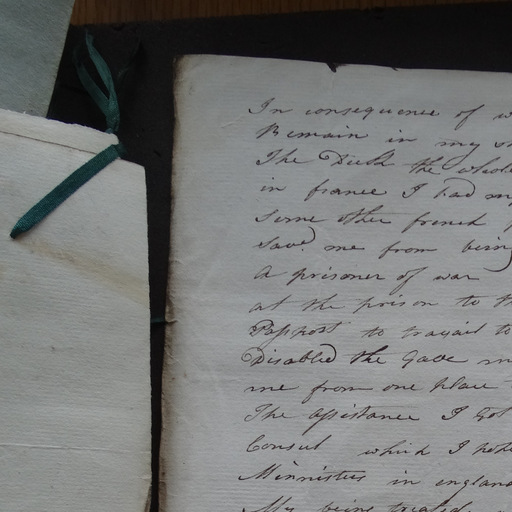 In consequence of
Remain in my
The Dick the whole
in france I had my
some other french
Saved me from being
a prisoner of war
at the prison to th
Passport to travail to
Disabled the Gave m
me from one place
The assistance I Got
Consul which I hole
Ministers in england
My being treated